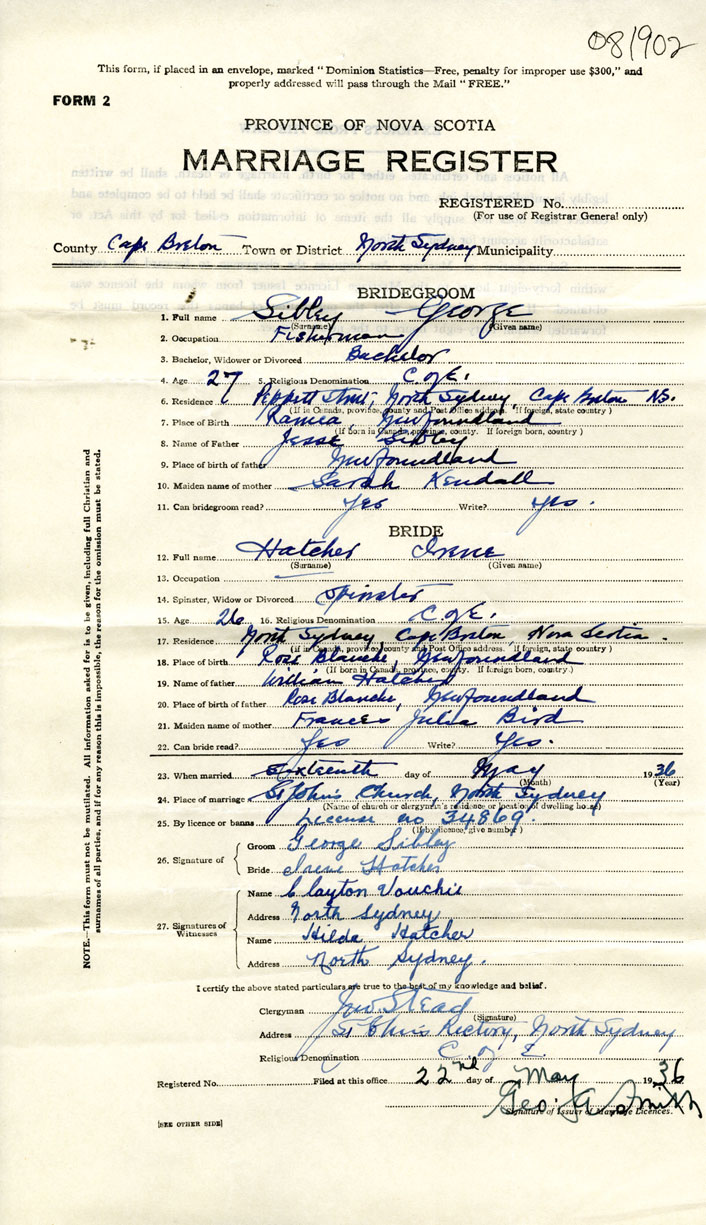 081902
This form, if placed in an envelope, marked "Dominion Statistics—Free, penalty for improper use $300," and
properly addressed will pass through the Mail "FREE."
FORM 2
PROVINCE OF NOVA SCOTIA
MARRIAGE REGISTER
REGISTERED No.
(For use of Registrar General only)
County Cape Breton Town or District North Sydney Municipality
BRIDEGROOM
1. Full name Sibley George
(Surname) (Given name)
2. Occupation Fisherman
3. Bachelor, Widower or Divorced Bachelor
4. Age 27 5. Religious Denomination C of E.
6. Residence Peppett Street, North Sydney, Cape Breton NS.
(If in Canada, province, county and Post Office address. If foreign, state country)
7. Place of Birth Ramea, Newfoundland
(If born in Canada, province, county. If foreign born, country)
8. Name of Father Jesse Sibley
9. Place of birth of father Newfoundland
10. Maiden name of mother Sarah Kendall
11. Can bridegroom read? Yes Write? Yes.
BRIDE
12. Full name Hatcher Irene
(Surname) (Given name)
13. Occupation
14. Spinster, Widow or Divorced Spinster
15. Age 26 16. Religious Denomination C of E.
17. Residence North Sydney, Cape Breton, Nova Scotia.
(If in Canada, province, county and Post Office address. If foreign, state country)
18. Place of birth Rose Blanche, Newfoundland
(If born in Canada, province, county. If foreign, country.)
19. Name of father William Hatcher
20. Place of birth of father Rose Blanche, Newfoundland
21. Maiden name of mother Frances Julia Bird
22. Can bride read? Yes Write? Yes.
23. When married Sixteenth day of May 1936
(Month) (Year)
24. Place of marriage St John's Church, North Sydney
(Name of church or clergyman's residence or location of dwelling house)
25. By licence or banns License no 34869.
(If by licence, give number)
26. Signature of
Groom George Sibley
Bride Irene Hatcher
27. Signatures of Witnesses
Name Clayton
Address North Sydney
Name Hilda Hatcher
Address North Sydney.
I certify the above stated particulars are true to the best of my knowledge and belief.
Clergyman Stead
(Signature)
Address St John's Rectory, North Sydney
Religious Denomination C of E.
Registered No. Filed at this office 22nd day of May 1936
Geo. A Smith
Signature of Issuer of Marriage Licences.
[SEE OTHER SIDE]
NOTE.—This form must not be mutilated. All information asked for is to be given, including full Christian and
surnames of all parties, and if for any reason this is impossible, the reason for the omission must be stated.